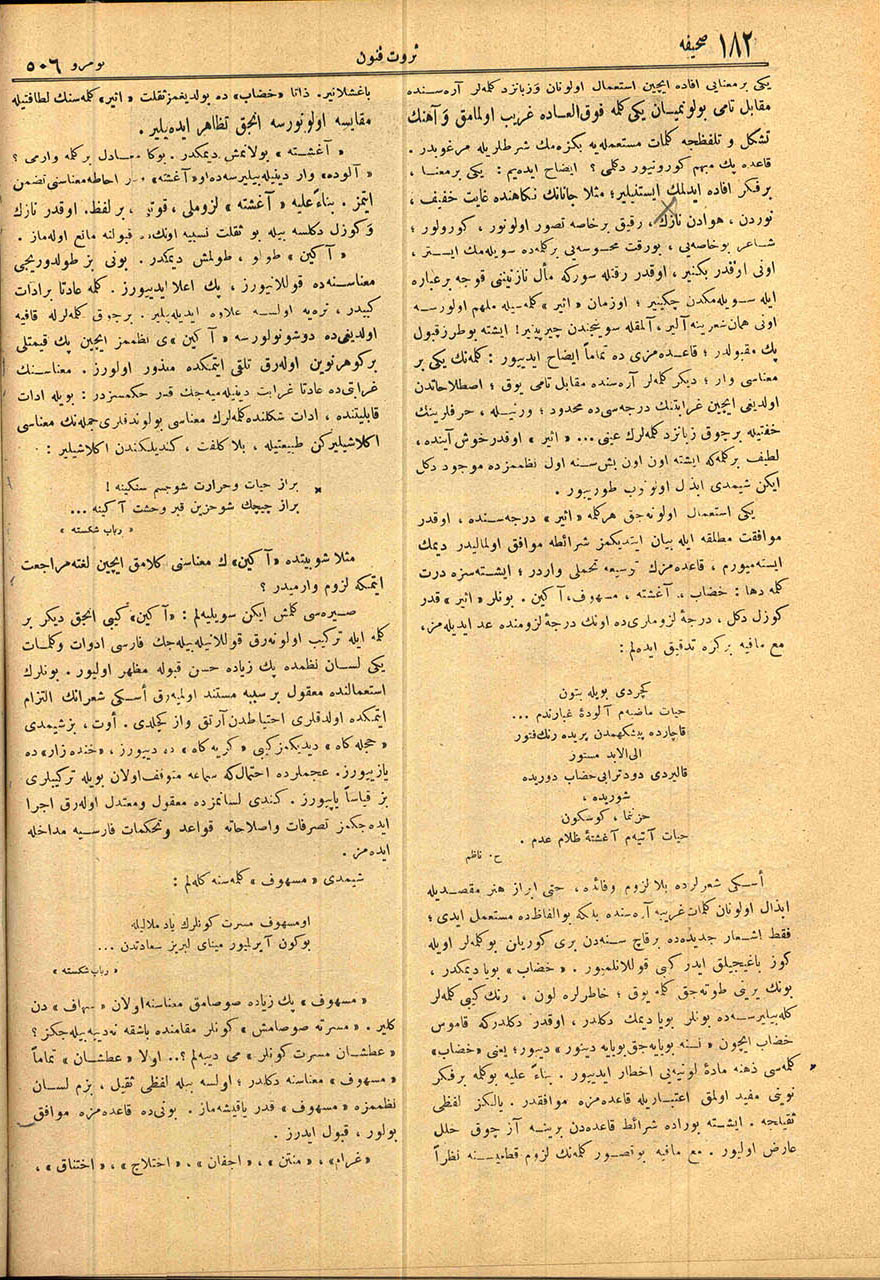 صحیفه ١٨٢
ثروت فنون
نومرو ٥٠٦
یکی بر معنایی افاده ایچین استعمال اولونان وزبانزد کله‌لر آره‌سنده
مقابل تامی بولونمیان یکی کله فوق العاده غریب اولمامق و آهنك
تشکل و تلفظجه کلمات مستعمله‌یه بکزه‌مك شرطلریله مرغوبدر.
قاعده پك مبهم کورونیور دکلمی؟ ایضاح ایده‌یم: یکی بر معنا،
بر فکر افاده ایدلمك ایستنیلیر؛ مثلا جانانك نکاهنده غایت خفیف،
نوردن، هوادن نازك، رقیق بر خاصه تصور اولونور، کورولور؛
شاعر بو خاصه‌یی، بورقت محسوسه‌یی بر کله‌ده سویله‌مك ایستر،
اونی اوقدر بکنیر، اوقدر رقتله سورکه مأل نازنیننی قوجه بر عباره
ایله سویله‌مکدن چکینیر؛ اوزمان «اثیر» کله‌سیله ملهم اولورسه
اونی همان شعرینه آلیر، آلمقله سوینجندن چیرپینیر! ایشته بوطرز قبول
پك مقبولدر؛ قاعده‌مزی ده تماماً ایضاح ایدییور: کله‌نك یکی بر
معناسی وار؛ دیکر کله‌لر آره‌سنده مقابل تامی یوق؛ اصطلاحاتدن
اولدیغی ایچین غرابتنك درجه‌سی‌ده محدود؛ وزنیله، حرفلرینك
خفتیله برچوق زبانزد کله‌لرك عینی... «اثیر» اوقدر خوش آینده،
لطیف بر کله‌که ایشته اون اون بش سنه اول نظممزده موجود دکل
ایکن شیمدی ابذل اولونوب طورییور.
یکی استعمال اولونه‌جق هر کله «اثیر» درجه‌سنده، اوقدر
موافقت مطلقه ایله بیان ایتدیکمز شرائطه موافق اولمالیدر دیمك
ایسته‌میورم، قاعده‌مزك توسیعه تحملی واردر؛ ایشته سزه درت
کله دها: خضاب، آغشته، مسهوف، آکین. بونلر «اثیر» قدر
کوزل دکل، درجهٔ لزوملری‌ده اونك درجهٔ لزومنده عد ایدیله‌مز،
مع مافیه بر کره تدقیق ایده‌لم:
کچردی بویله بتون
حیات ماضیه‌م آلودهٔ غبارندم...
قاچارده پیشکهمدن پریده رنك فتور
الی‌الابد مستور
قالیردی دود ترابی خضاب دوریده
شوریده،
حزننما، کوسکون
حیات آتیه‌م آغشتهٔ ظلام عدم.
ح. ناظم
أسکی شعرلرده بلا لزوم وفائده، حتی ابراز هنر مقصدیله
ابذال اولونان کلمات غریبه آره‌سنده بلکه بو الفاظ‌ده مستعمل ایدی؛
فقط اشعار جدیده‌ده بر قاچ سنه‌دن بری کوریلن بو کله‌لر اویله
کوز باغیجیلق ایدر کبی قوللانلمیور. «خضاب» بویا دیمکدر،
بونك یرینی طوته‌جق کله یوق؛ خاطرلره لون، رنك کبی کله‌لر
کله‌بیلیرسه‌ده بونلر بویا دیمك دکلدر، اوقدر دکلدرکه قاموس
خضاب ایچون «نسنه بویایه‌جق بویایه دینور» دییور؛ یعنی «خضاب»
کله‌سی ذهنه مادهٔ لونیه‌یی اخطار ایدییور. بناءً علیه بو کله بر فکر
نوینی مفید اولمق اعتباریله قاعده‌مزه موافقدر. یالکز لفظی
ثقیلجه. ایشته بوراده شرائط قاعده‌دن برینه آز چوق خلل
عارض اولیور. مع مافیه بو قصور کله‌نك لزوم قطعیسنه نظراً
باغشلانیر. ذاتا «خضاب» ده بولدیغمز ثقلت «اثیر» کله‌سنك لطافتیله
مقایسه اولونورسه انجق تظاهر ایده‌بیلیر.
«آغشته» بولانمش دیمکدر. بوکا معادل بر کله وارمی؟
«آلوده» وار دینیله‌بیلیرسه‌ده او «آغشته» احاطه معناسنی تضمن
ایتمز. بناءً علیه «آغشته» لزوملی، قوتلی بر لفظ. اوقدر نازك
و کوزل دکلسه بیله بو ثقلت نسبیه اونك قبولنه مانع اوله‌ماز.
«آکین» طولو، طولمش دیمکدر. بونی بز طولدوریجی
معناسنه‌ده قوللانیورز، پك اعلا ایدییورز. کله عادتا بر ادات
کبیدر، نره‌یه اولسه علاوه ایدیله‌بیلیر. برچوق کله‌لرله قافیه
اولدیغی‌ده دوشونولورسه «آکین» ی نظممز ایچین پك قیمتلی
بر کوهر نوین اوله‌رق تلقی ایتمکده معذور اولورز. معناسنك
غرابتی‌ده عادتا غرابت دینیله‌میه‌جك قدر حکمسزدر: بویله ادات
قابلیتنده، ادات شکلنده کله‌لرك معناسی بولوندقلری جمله‌نك معناسی
اکلاشیلیرکن طبیعتیله، بلا کلفت، کندیلکندن اکلاشیلیر:
براز حیات و حرارت شو جسم سنکینه!
براز چیچك شو حزین قبر وحشت آکینه...
«رباب شکسته»
مثلا شو بیتده «آکین» ك معناسنی اکلامق ایچین لغته مراجعت
ایتمکه لزوم وارمیدر؟
صیره‌سی کلمش ایکن سویلیه‌لم: «آکین» کبی انجق دیکر بر
کله ایله ترکیب اولونه‌رق قوللانیله‌بیله‌جك فارسی ادوات و کلمات
یکی لسان نظمده پك زیاده حسن قبوله مظهر اولیور. بونلرك
استعمالنده معقول بر سببه مستند اولمیه‌رق أسکی شعرانك التزام
ایتمکده اولدقلری احتیاطدن آرتق واز کچلدی. أوت، بز شیمدی
«حجله‌کاه» دیدیکمز کبی «کریه‌کاه» ده دییورز، «خنده‌زار» ده
یازییورز. عجملرده احتمال‌که سماعه متوقف اولان بویله ترکیبلری
بز قیاساً یاپیورز. کندی لسانمزده معقول و معتدل اوله‌رق اجرا
ایده‌جکمز تصرفات و اصلاحاته قواعد و تحکمات فارسیه مداخله
ایده‌مز.
شیمدی «مسهوف» کله‌سنه کله‌لم:
او مسهوف مسرت کونلرك یاد ملالیله
بوکون آیرلیور مینای لبریز سعادتدن...
«رباب شکسته»
«مسهوف» پك زیاده صوصامق معناسنه اولان «سهاف» دن
کلیر. «مسرته صوصامش» کونلر مقامنده باشقه نه دییه‌بیله‌جکز؟
«عطشان مسرت کونلر» می دییه‌لم؟.. اولا «عطشان» تماماً
«مسهوف» معناسنه دکلدر؛ اولسه بیله لفظی ثقیل، بزم لسان
نظممزه «مسهوف» قدر یاقیشه‌ماز. بونی‌ده قاعده‌مزه موافق
بولور، قبول ایدرز.
«غرام»، «منتن»، «اجفان»، «اختلاج»، «اختناق»،